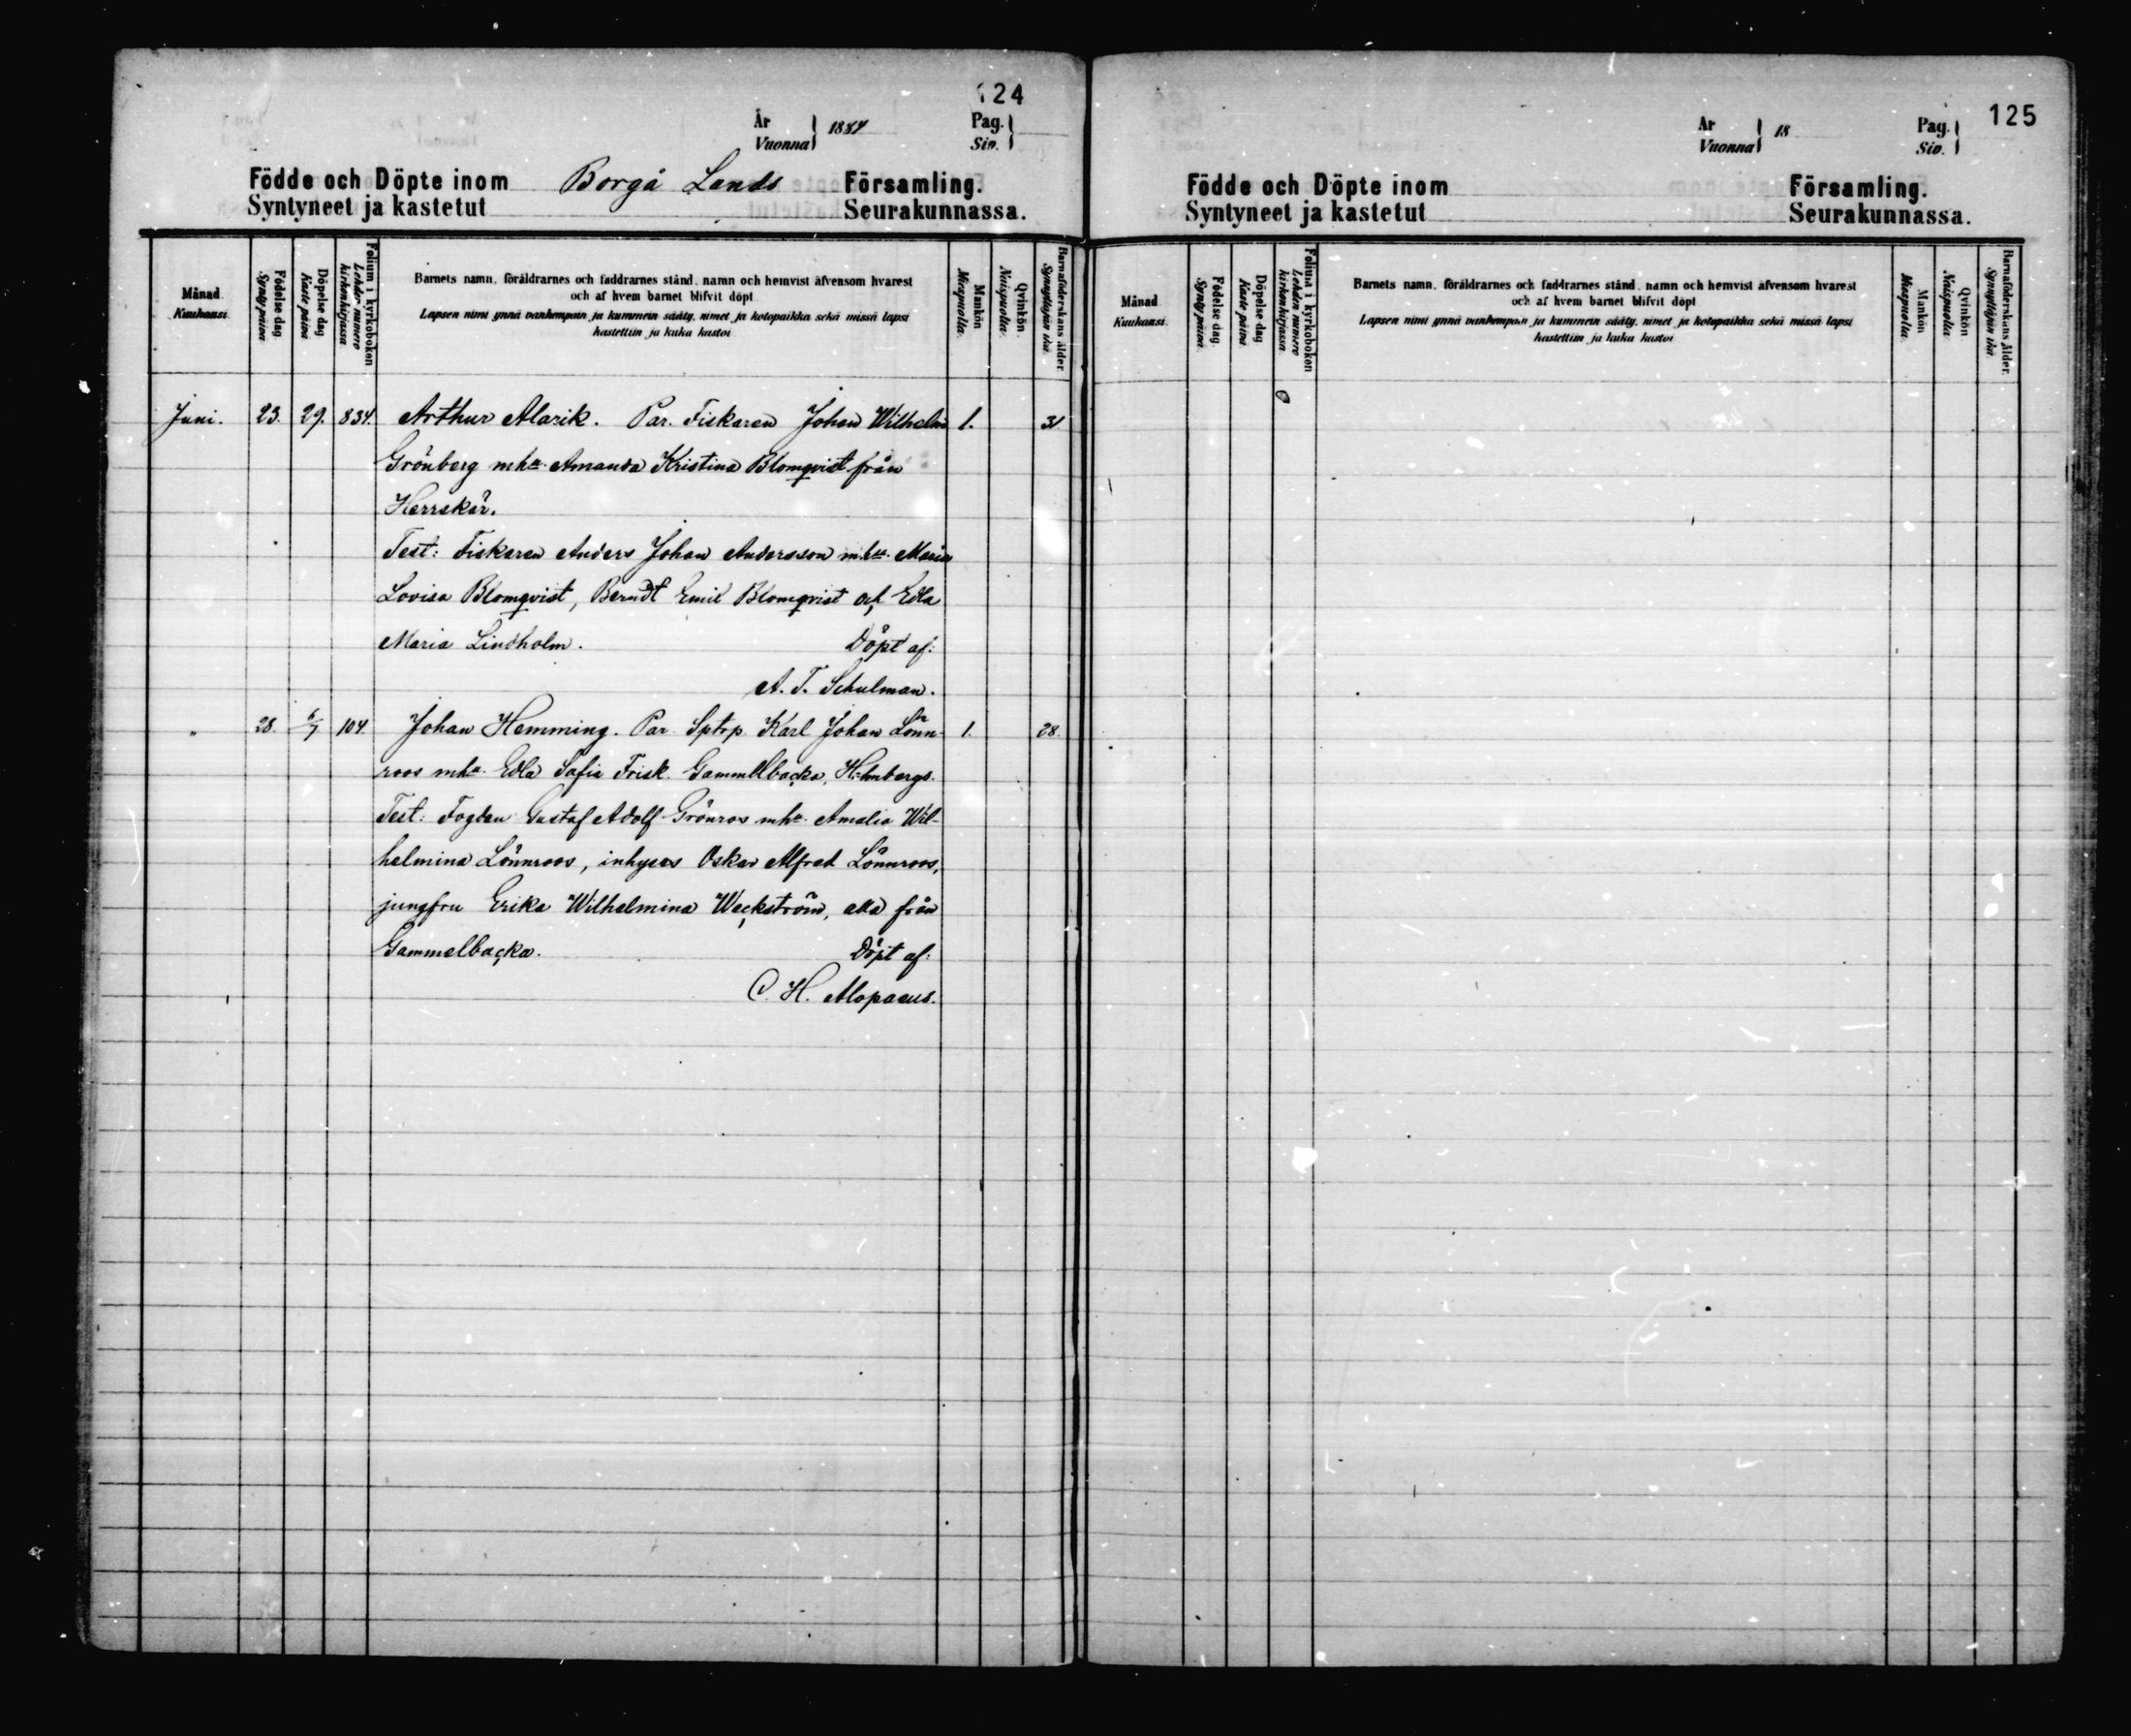 124
År Vuonna } 1884 Pag. Siv. }
Födde och Döpte inom Borgå Lands Församling.
Syntyneet ja kastetut Seurakunnassa.
Månad Kuukausi
Födelse dag. Synty päivä
Döpelse dag Kaste päivä
Folium i kyrkoboken Lehden numero kirkonkirjassa
Barnets namn, föräldrarnes och faddrarnes stånd, namn och hemvist äfvensom hvarest
och af hvem barnet blifvit döpt
Lapsen nimi ynnä vanhempain ja kummein sääty, nimet ja kotopaikka sekä missä lapsi
kastettiin ja kuka kastoi
Mankön Miespuolta.
Qvinkön Naispuolta.
Barnaföderskans ålder. Synnyttäjän ikä.
Juni. 23. 29. 834. Arthur Alarik. Par. Fiskaren Johan Wilhelm 1. 31
Grönberg mhu. Amanda Kristina Blomqvist från
Herrskär.
Test: Fiskaren Anders Johan Andersson m.hu. Maria
Lovisa Blomqvist, Berndt Emil Blomqvist och Edla
Maria Lindholm. Döpt af:
A. T. Schulman.
" 28. 6/7 104. Johan Hemming. Par. Sptrp. Karl Johan Lönn- 1. 28.
roos mhu. Edla Sofia Frisk. Gammelbacka, Holmbergs.
Test: Fogden Gustaf Adolf Grönros mhu. Amalia Wil-
helmina Lönnroos, inhyses Oskar Alfred Lönnroos,
jungfru Erika Wilhelmina Weckström, alla från
Gammelbacka. Döpt af:
C. H. Alopaeus.
125
År Vuonna } 18 Pag. Siv. }
Födde och Döpte inom Församling.
Syntyneet ja kastetut Seurakunnassa.
Månad Kuukausi.
Födelse dag. Synty päivä.
Döpelse dag Kaste päivä.
Folium i kyrkoboken Lehden numero kirkonkirjassa
Barnets namn, föräldrarnes och faddrarnes stånd, namn och hemvist äfvensom hvarest
och af hvem barnet blifvit döpt
Lapsen nimi ynnä vanhempain ja kummein sääty, nimet ja kotopaikka sekä missä lapsi
kastettiin ja kuka kastoi
Mankön Miespuolta.
Qvinkön Naispuolta
Barnaföderskans ålder. Synnyttäjän ikä